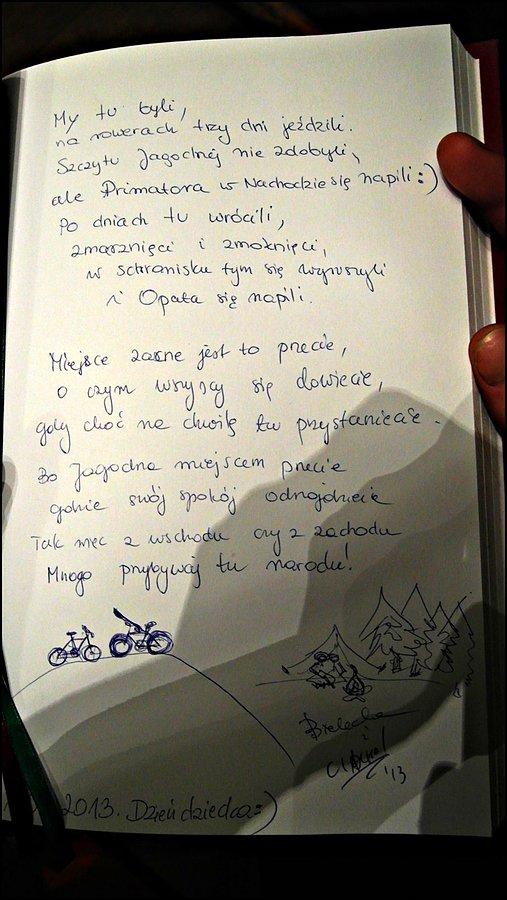 My tu byli,
na rowerach trzy dni jeździli.
Szczytu Jagodnej nie zdobyli,
ale Primatora w Nachodzie się napili :)
Po dniach tu wrócili,
zmarznięci i zmoknięci,
w schronisku tym się wysuszyli
i Opata się napili.
Miejsce zacne jest to przecie,
o czym wszyscy się dowiecie,
gdy choć na chwilę tu przystaniecie.
Bo Jagodna miejscem przecie
gdzie swój spokój odnajdziecie
Tak więc z wschodu czy z zachodu
Mnogo przybywaj tu narodu!
i
'13
2013. Dzień dziecka :)